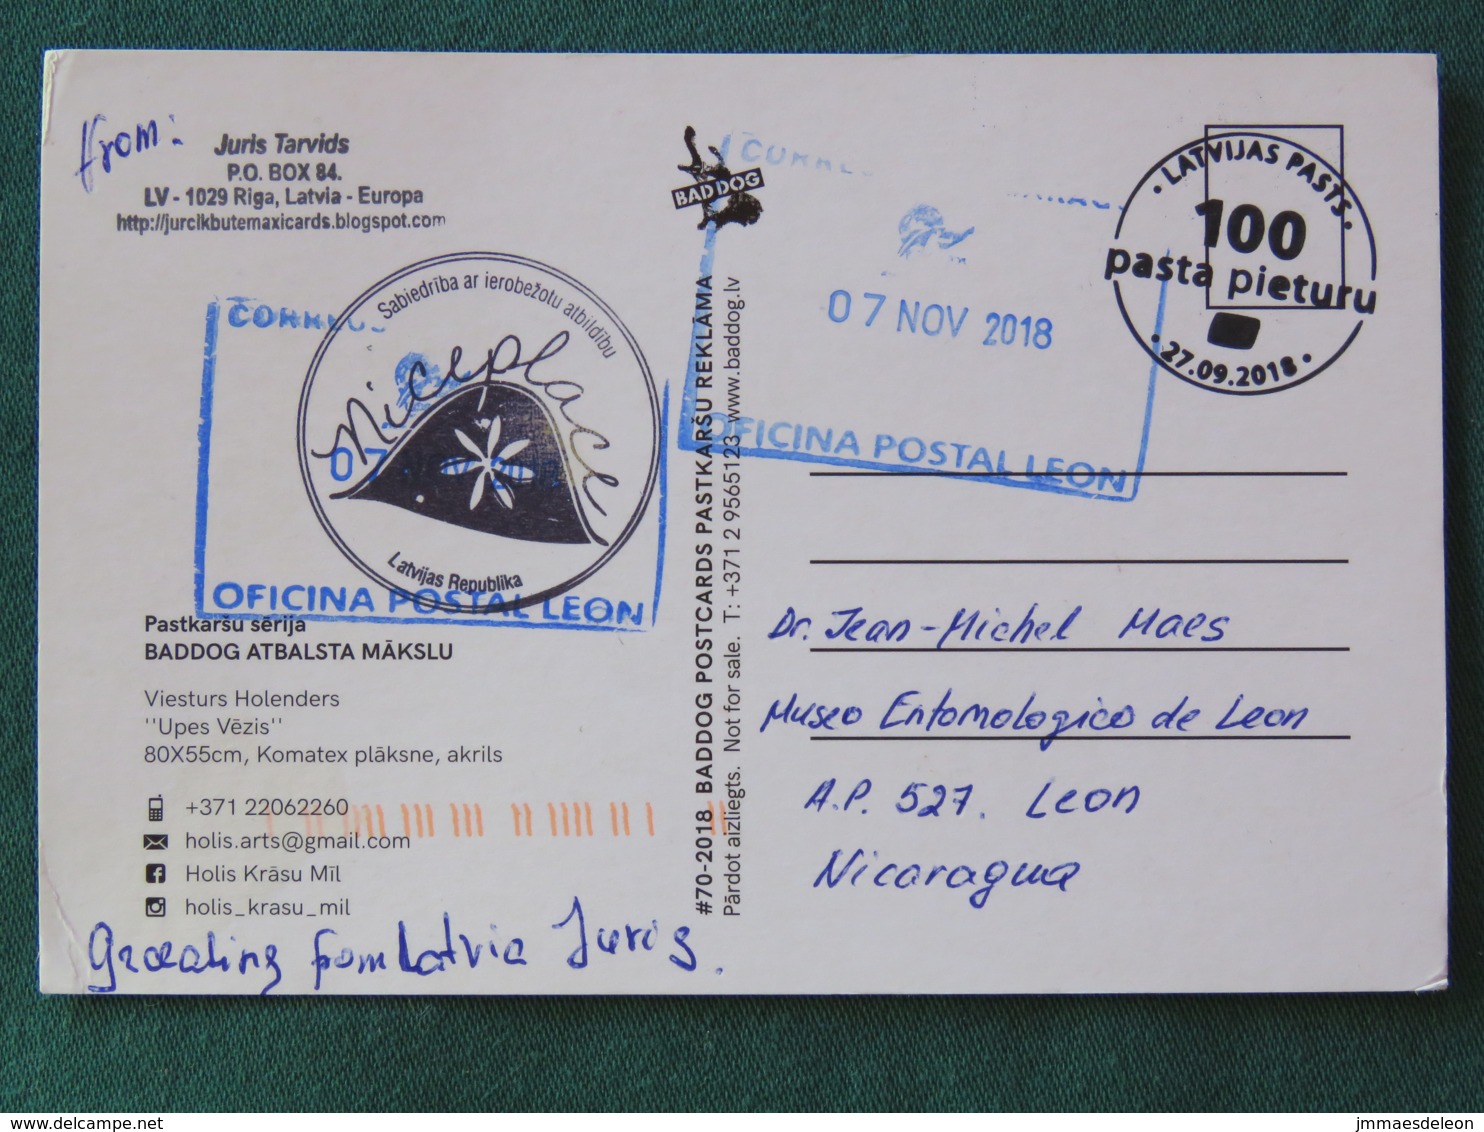 from:
Juris Tarvids
P.O. BOX 84.
LV - 1029 Riga, Latvia - Europa
http://jurcikbutemaxicards.blogspot.com
BAD DOG
LATVIJAS PASTS
100
pasta pieturu
27.09.2018
07 NOV 2018
OFICINA POSTAL LEON
Sabiedrība ar ierobežotu atbildību
Niceplace
Latvijas Republika
OFICINA POSTAL LEON
Pastkaršu sērija
BADDOG ATBALSTA MĀKSLU
Viesturs Holenders
''Upes Vēzis''
80X55cm, Komatex plāksne, akrils
+371 22062260
holis.arts@gmail.com
Holis Krāsu Mīl
holis_krasu_mil
from Latvia Juris.
#70-2018 BADDOG POSTCARDS PASTKARŠU REKLĀMA
Pārdot aizliegts. Not for sale. T: +371 2 9565123 www.baddog.lv
Dr. Jean-Michel Maes
Museo Entomologico de Leon
A.P. 527. Leon
Nicaragua
delcampe.net
jmmaesdeleon